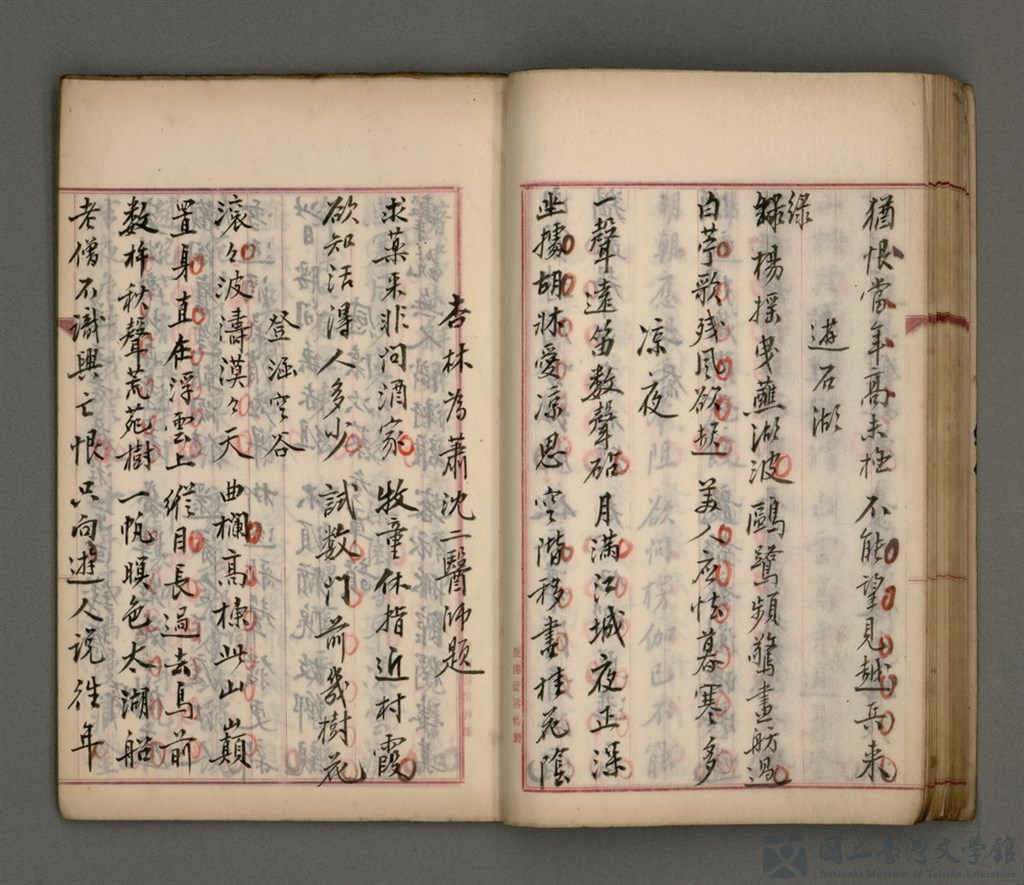 猶恨當年高未極不能望見越兵来
遊石湖
綠
綠楊揺曳蘸湖波鷗鷺頻驚畫舫過
白苧歌残風欲起美人應怯暮寒多
凉夜
一聲遠笛数聲砧月滿江城夜正深
坐據胡牀愛凉思空階移盡桂花陰
杏林為蕭沈二醫師題
求藥来非问酒家牧童休指近村霞
欲知活得人多少試数门前幾樹花
登涵空谷
滾々波濤漠々天曲欄高棟此山巔
置身直在浮雲上縱目長過去鳥前
数杵秋聲荒苑樹一帆暝色太湖船
老僧不識興亡恨只向遊人説往年
國立臺灣文學館
National Museum of Taiwan Literature